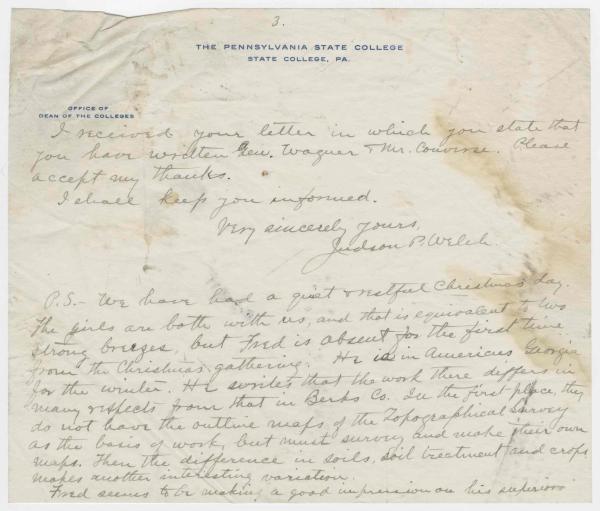 3.
THE PENNSYLVANIA STATE COLLEGE
STATE COLLEGE, PA.
OFFICE OF
DEAN OF THE COLLEGES
I received your letter in which you state that
you have written Gen. Wagner & Mr. Converse. Please
accept my thanks.
I shall keep you informed.
Very sincerely yours,
Judson P. Welch.
P.S. - We have had a quiet & restful Christmas day.
The girls are both with us, and that is equivalent to two
strong breezes, but Fred is absent for the first time
from the Christmas gathering. He is in Americus Georgia
for the winter. He writes that the work there differs in
many respects from that in Berks Co. In the first place, they
do not have the outline maps of the Topographical Survey
as the basis of work, but must survey and make their own
maps. Then the difference in soils, soil treatment and crops
makes another interesting variation.
Fred seems to be making a good impression on his superiors